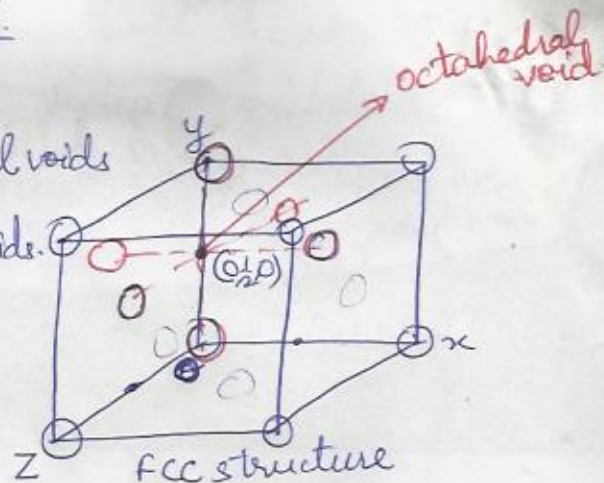 octahedral
void
y
l voids
ids.
(0 1/2 0)
x
Z
FCC structure